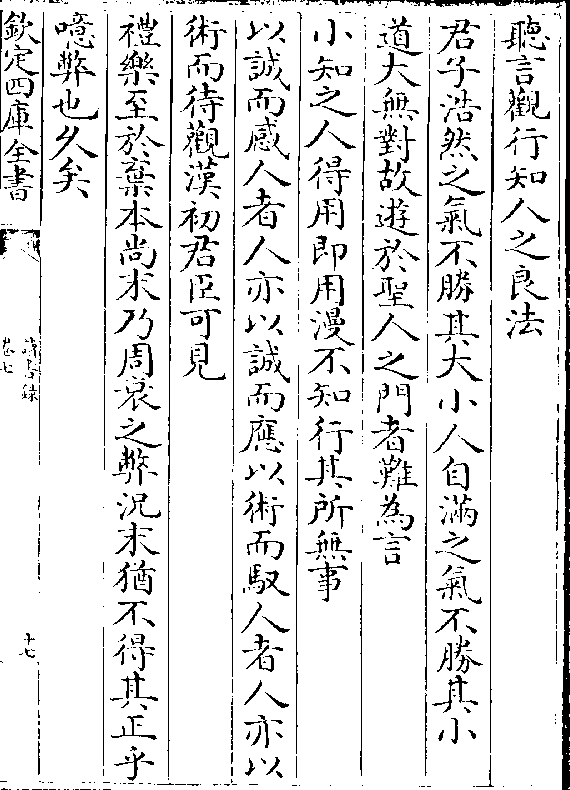 聽言觀行知人之良法
君子浩然之氣不勝其大小人自滿之氣不勝其小
道大無對故遊於聖人之門者難為言
小知之人得用即用漫不知行其所無事
以誠而感人者人亦以誠而應以術而馭人者人亦以
術而待觀漢初君臣可見
禮樂至於棄本尚末乃周衰之弊況末猶不得其正乎
噫弊也久矣
欽定四庫全書
讀書錄
卷七
十七